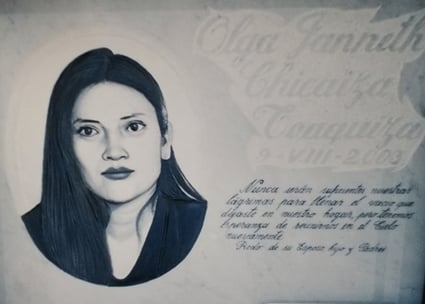 Olga Janneth
Chicaiza
Toaquiza
9-VIII-2003
Nunca serán suficientes nuestras
lágrimas para llenar el vacio que
dejaste en nuestro hogar, pero tenemos
Esperanza de reunirnos en el Cielo
nuevamente
Rcdo de su Esposo, hijo y Padres